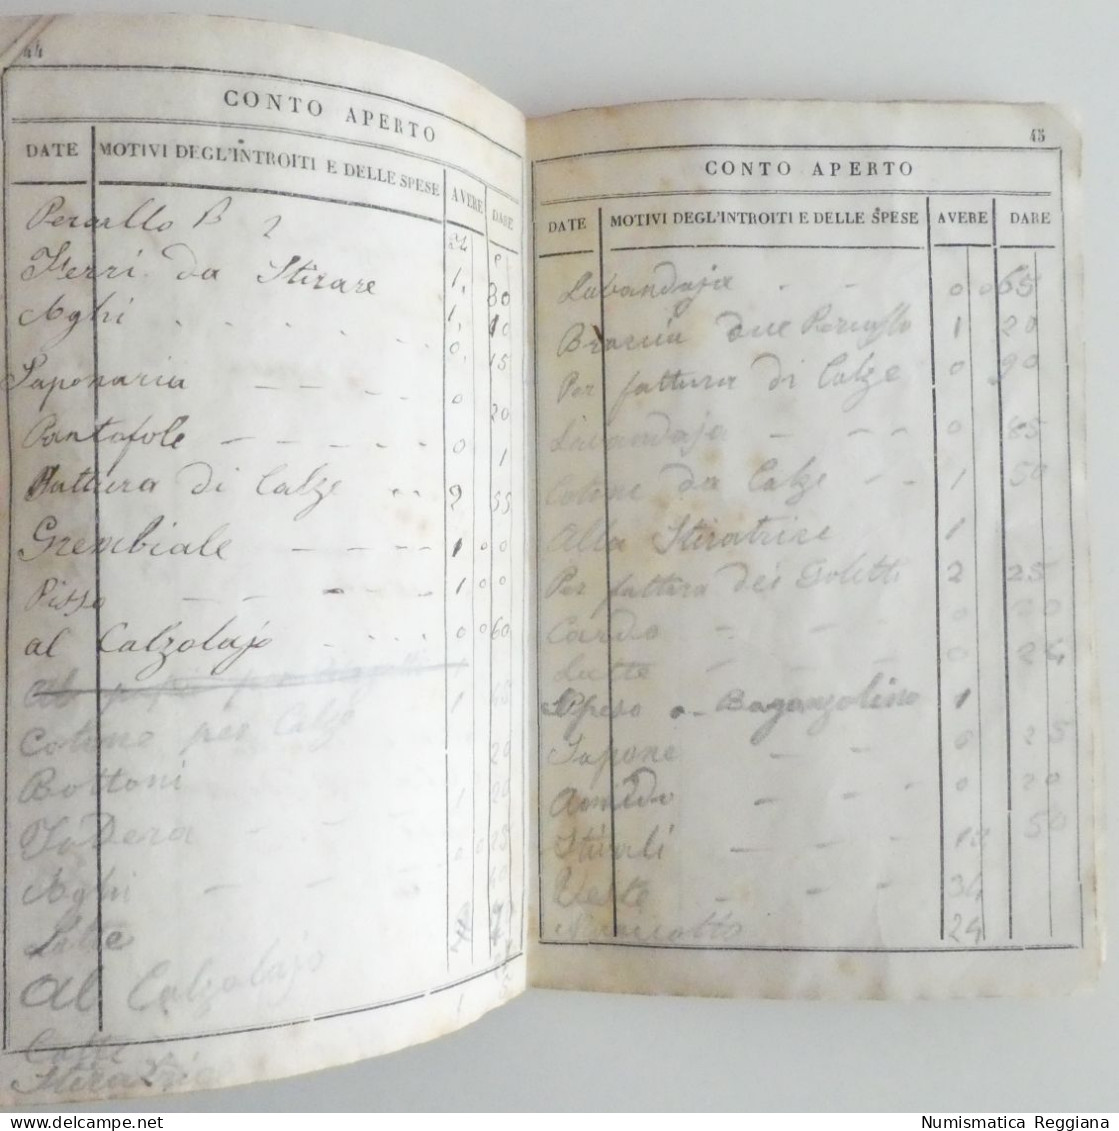 44
CONTO APERTO
DATE MOTIVI DEGL'INTROITI E DELLE SPESE AVERE DARE
Percallo B 2 24
Ferri da Stirare 1, 80
Aghi 1, 10
Saponaria 0 15
Pantofole 0 20
Fattura di Calze 2 55
Grembiale 1 00
Pizzo 1 00
al Calzolajo 0 60
Cotone per Calze 1
Bottoni 20
Fodera 1 20
Aghi 0
Latte
Al Calzolajo
Caffè
Stiratrice
45
CONTO APERTO
DATE MOTIVI DEGL'INTROITI E DELLE SPESE AVERE DARE
Lavandaja 0 65
Braccia due Percallo 1 20
Per fattura di Calze 0 90
Lavandaja 0 85
Cotone da Calze 1 50
Alla Stiratrice 1
Per fattura dei Goletti 2 25
Cardo 0 20
Latte 0 24
Speso a Baganzolino 1
Sapone 0 25
Amido 0 20
Stivali 12 50
Veste 34
24
Numismatica Reggiana